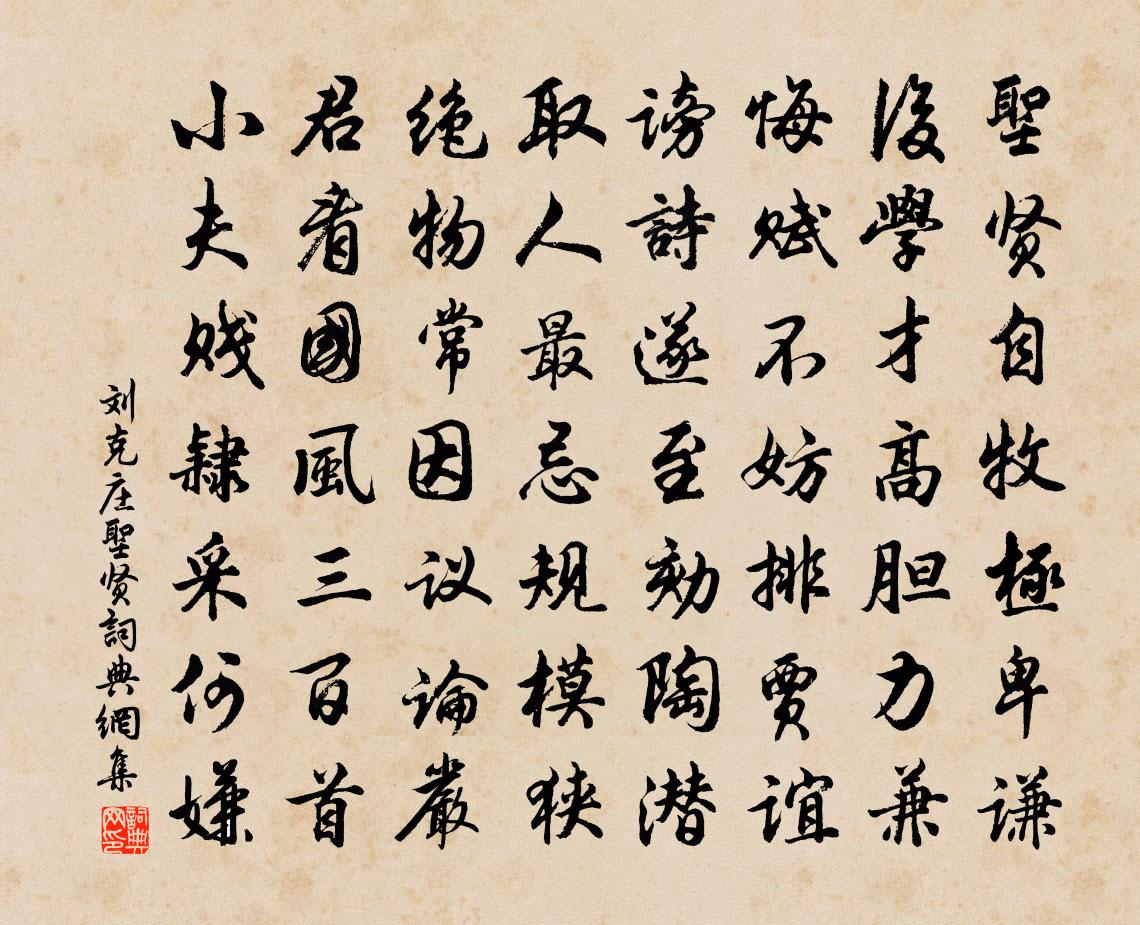 聖贤自牧極卑谦
後學才高胆力兼
悔赋不妨排贾谊
谤詩遂至劾陶潜
取人最忌規模狭
绝物常因议論嚴
君看國風三百首
小夫贱隸采何嫌
刘克庄聖贤詞典網集
詞典网印